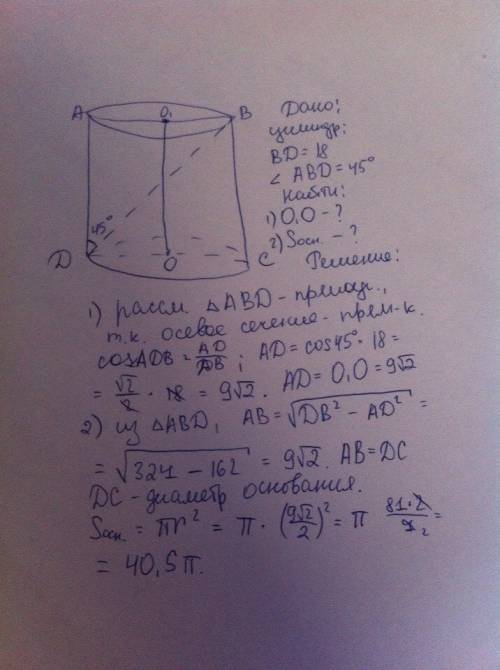 A O₁ B
45°
D O C
Дано:
цилиндр:
BD = 18
∠ ABD = 45°
Найти:
1) O₁O - ?
2) Sосн. - ?
Решение:
1) рассм. △ABD - прямоуг.,
т.к. осевое сечение - прям-к.
cosADB = AD/DB; AD = cos45° · 18 =
= √2/2 · 18 = 9√2. AD = O₁O = 9√2
2) из △ABD, AB = √(DB² - AD²) =
= √(324 - 162) = 9√2. AB = DC
DC - диаметр основания.
Sосн. = πr² = π · (9√2/2)² = π 81·2/4 2 =
= 40,5π.